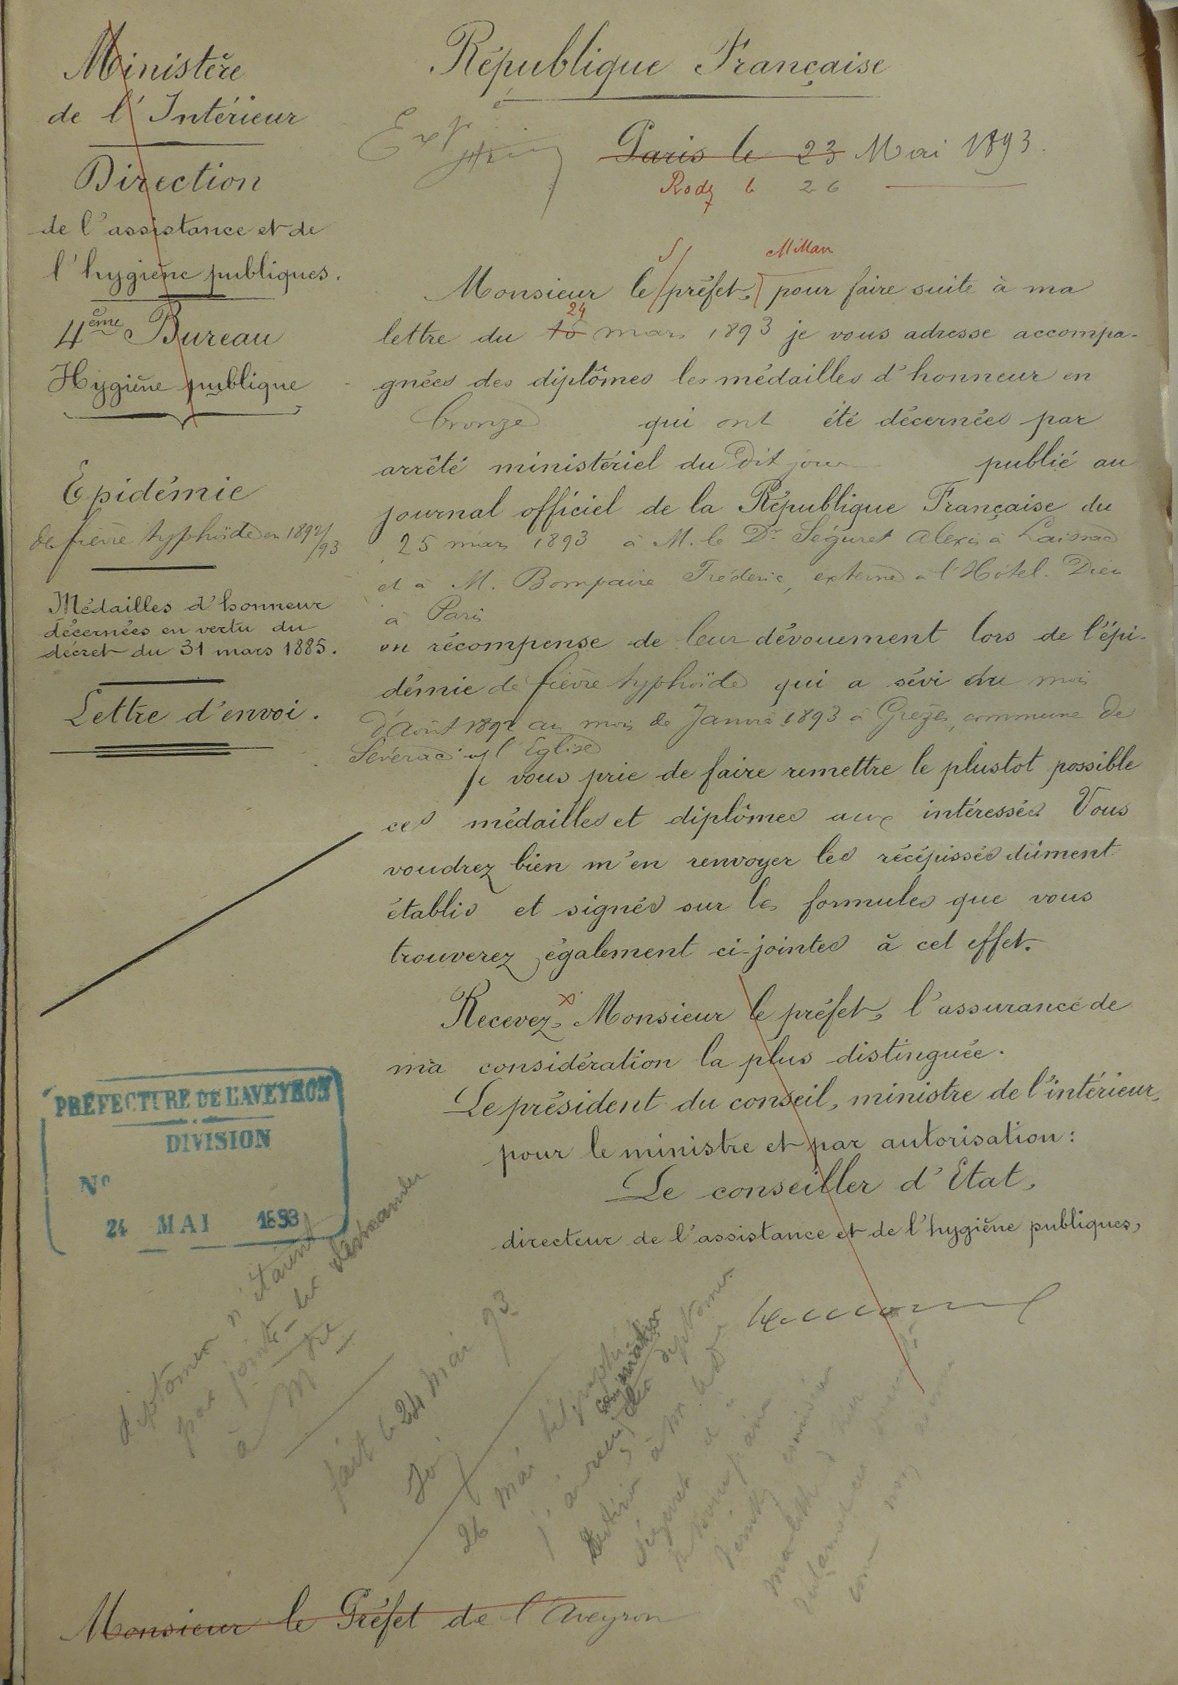 Ministère
de l'Intérieur
Direction
de l'assistance et de
l'hygiène publiques.
4ème Bureau
Hygiène publique
Epidémie
de fièvre typhoïde en 1892/93
Médailles d'honneur
décernées en vertu du
décret du 31 mars 1885.
Lettre d'envoi.
République Française
Paris le 23 Mai 1893.
Rodez le 26
S/ Millau
Monsieur le préfet, pour faire suite à ma
24
lettre du 16 mars 1893 je vous adresse accompa-
gnées des diplômes les médailles d'honneur en
bronze qui ont été décernées par
arrêté ministériel du dit jour publié au
journal officiel de la République Française du
25 mars 1893 à M. le Dr Séguret Alexis à Laissac
et à M. Bompaire Fréderic, externe à l'Hôtel-Dieu
à Paris
en récompense de leur dévouement lors de l'épi-
démie de fièvre typhoïde qui a sévi du mois
d'Août 1892 au mois de Janvier 1893 à Grèzes, commune de
Séverac l'Eglise
Je vous prie de faire remettre le plustot possible
ces médailles et diplômes aux intéressés Vous
voudrez bien m'en renvoyer les récépissés dûment
établis et signés sur les formules que vous
trouverez également ci-jointes à cet effet.
Recevez, Monsieur le préfet, l'assurance de
ma considération la plus distinguée.
Le président du conseil, ministre de l'intérieur,
pour le ministre et par autorisation:
Le conseiller d'Etat,
directeur de l'assistance et de l'hygiène publiques,
PRÉFECTURE DE L'AVEYRON
DIVISION
No
24 MAI 1893
diplomes n'étaient
pas joints - les demander
à Mre
fait le 24 mai 93
26 mai
Monsieur le Préfet de l'Aveyron